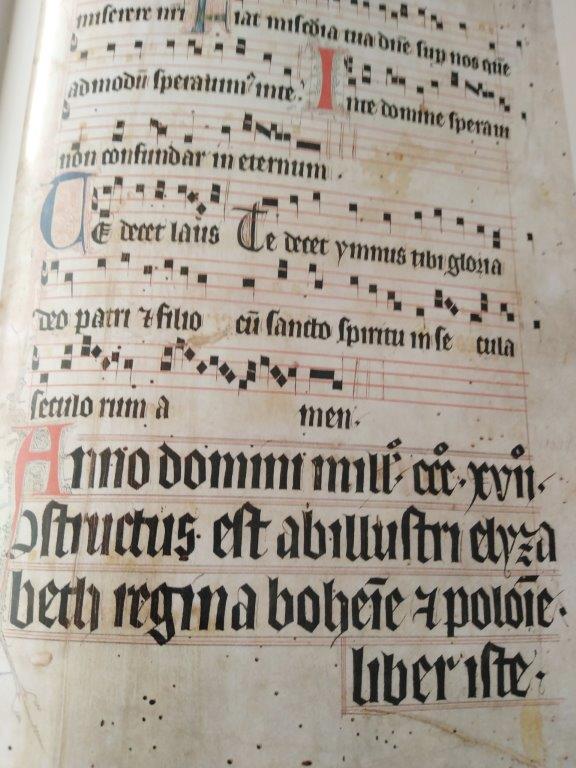 miserere nri Fiat misc̄dia tua dn̄e sup nos que
admodū speravim⁹ in te. In te domine speravi
non confundar in eternum
TE decet laus Te decet ymnus tibi gloria
deo patri ⁊ filio cū sancto spiritu in se cula
seculo rum a men.
Anno domini mill̄o ccc̊·xvii̊·
ɔstructus est ab illustri elyza
beth regina boheīe ⁊ poloīe·
liber iste·